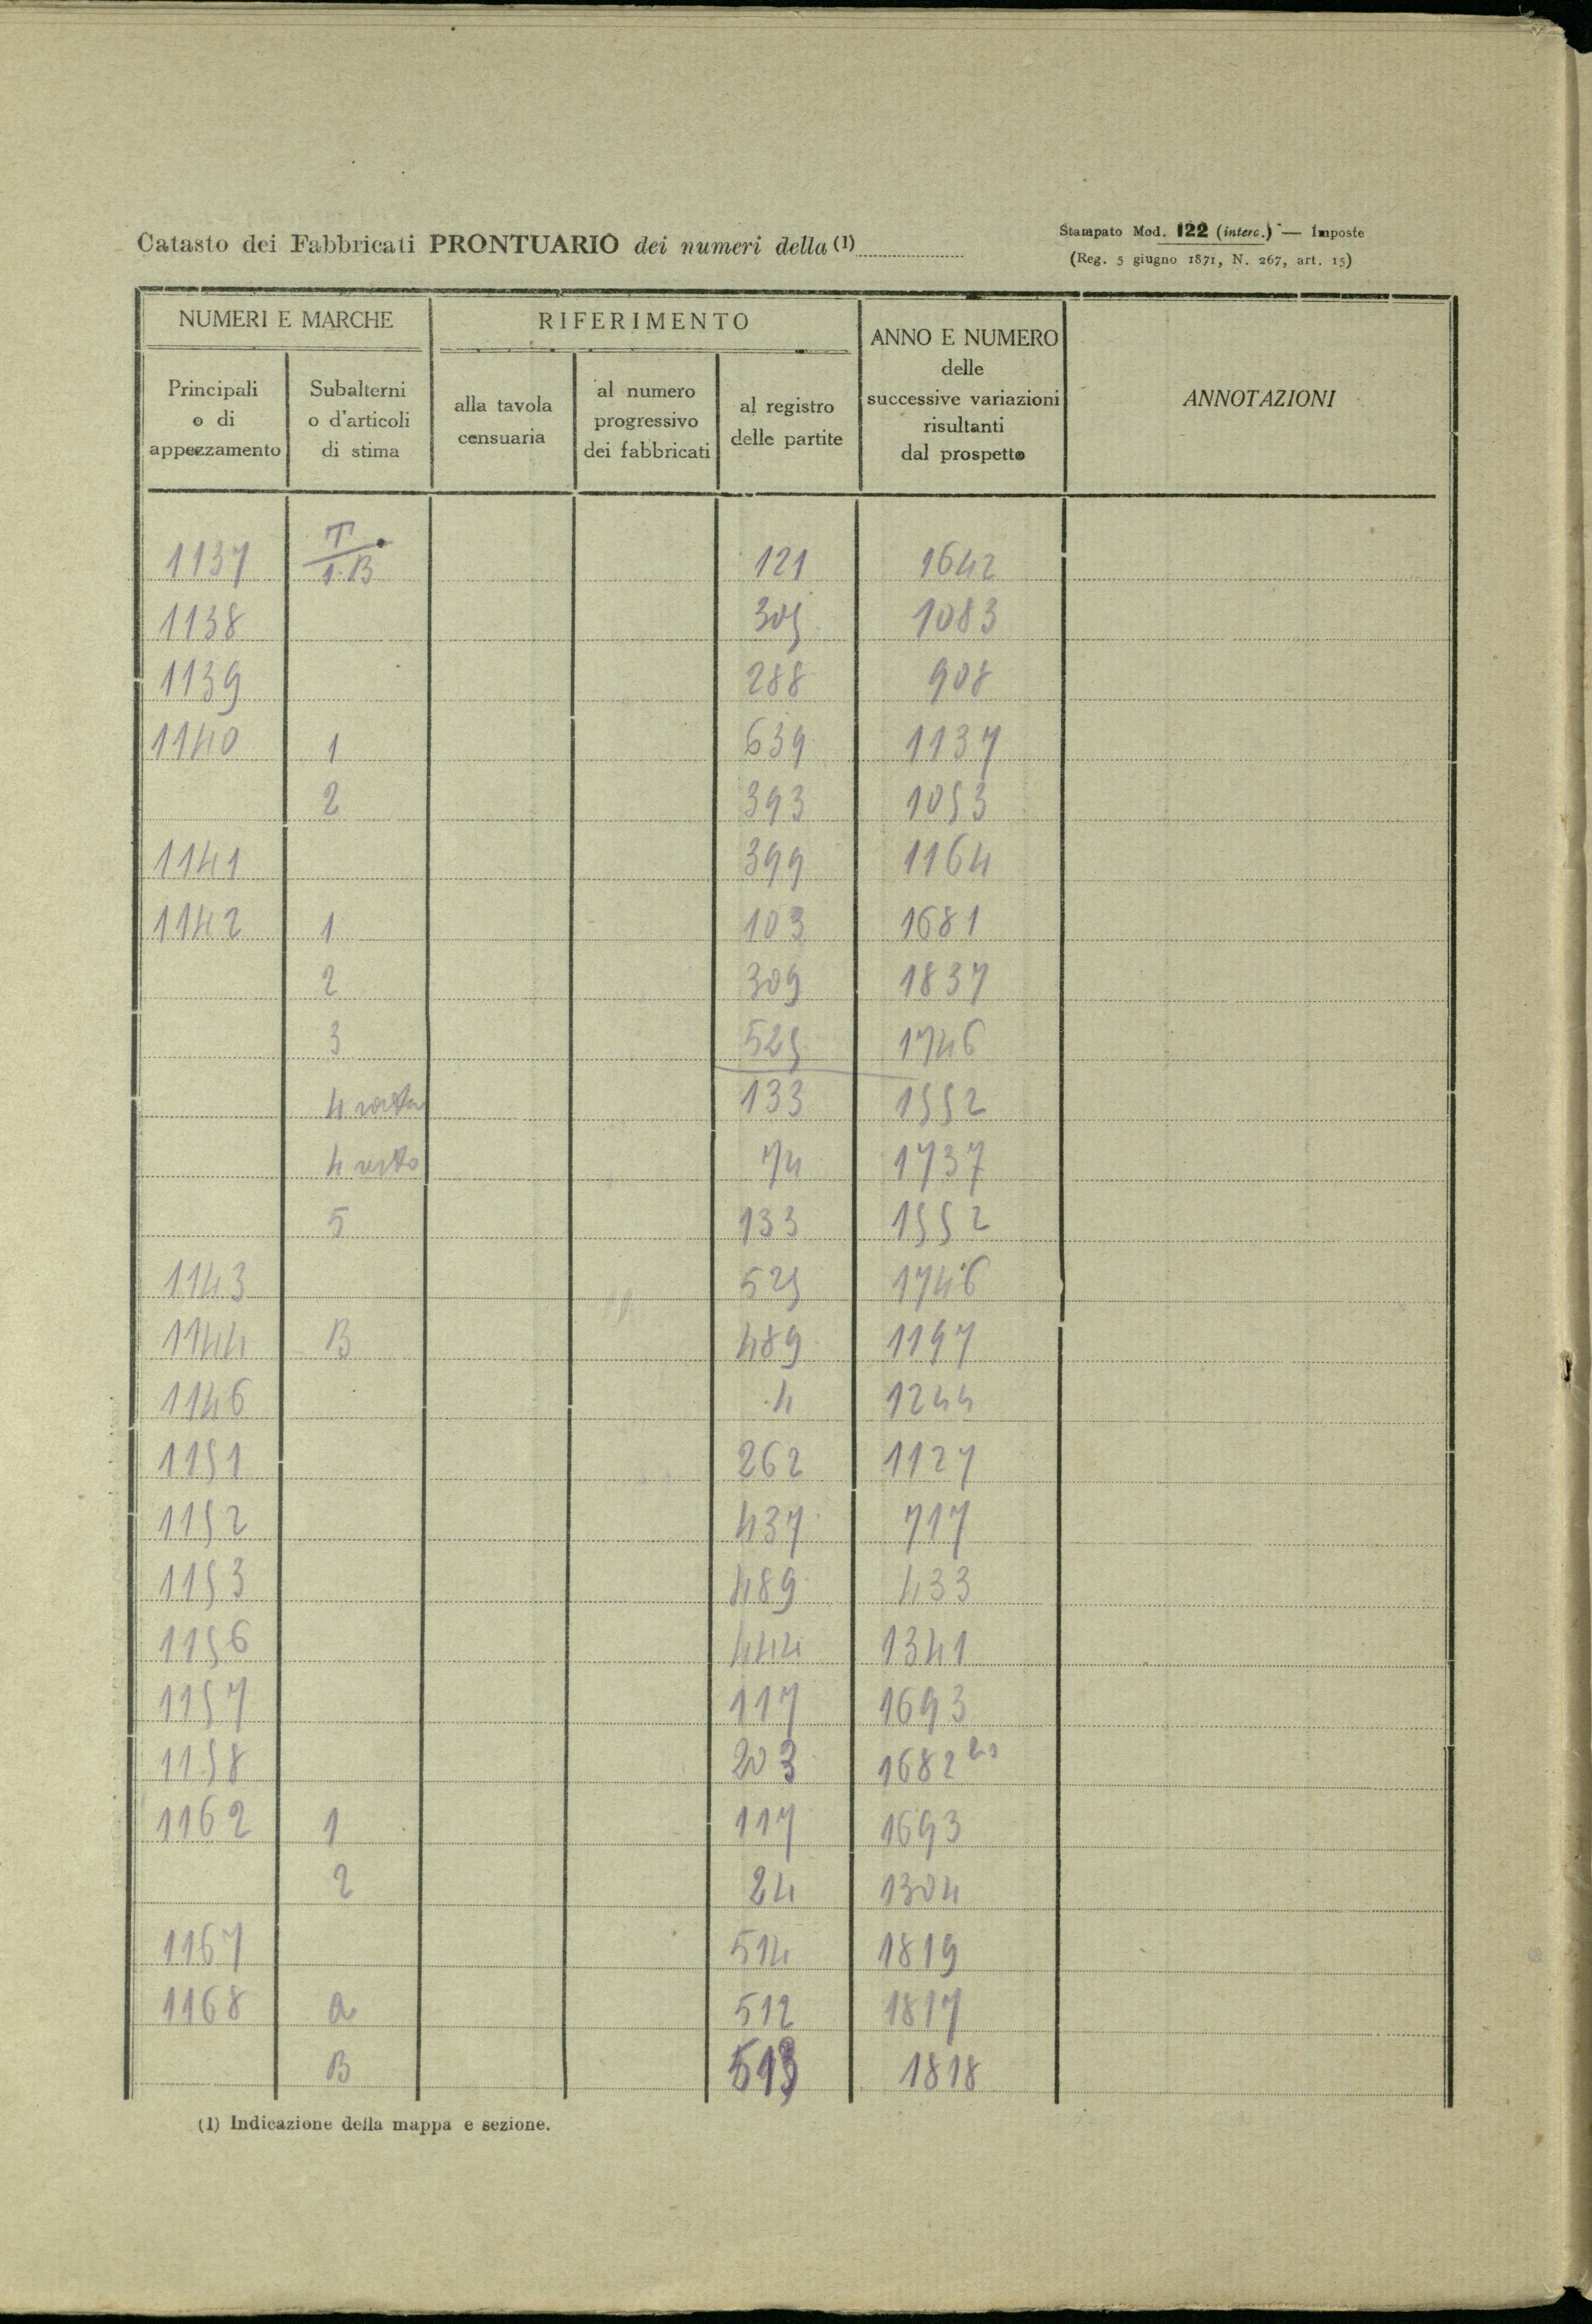 Catasto dei Fabbricati PRONTUARIO dei numeri della (1)
Stampato Mod. 122 (interc.) — Imposte
(Reg. 5 giugno 1871, N. 267, art. 15)
NUMERI E MARCHE RIFERIMENTO ANNO E NUMERO delle successive variazioni risultanti dal prospetto ANNOTAZIONI
Principali o di appezzamento Subalterni o d'articoli di stima alla tavola censuaria al numero progressivo dei fabbricati al registro delle partite
1137 T/1.B 121 1642
1138 305 1083
1139 288 908
1140 1 639 1137
2 393 1053
1141 399 1164
1142 1 103 1681
2 309 1837
3 525 1746
4 133 1552
4 74 1737
5 133 1552
1143 525 1746
1144 B 489 1197
1146 4 1244
1151 262 1127
1152 437 717
1153 489 433
1156 444 1341
1157 117 1693
1158 203 1682
1162 1 117 1693
2 24 1304
1167 514 1819
1168 a 512 1817
B 513 1818
(1) Indicazione della mappa e sezione.